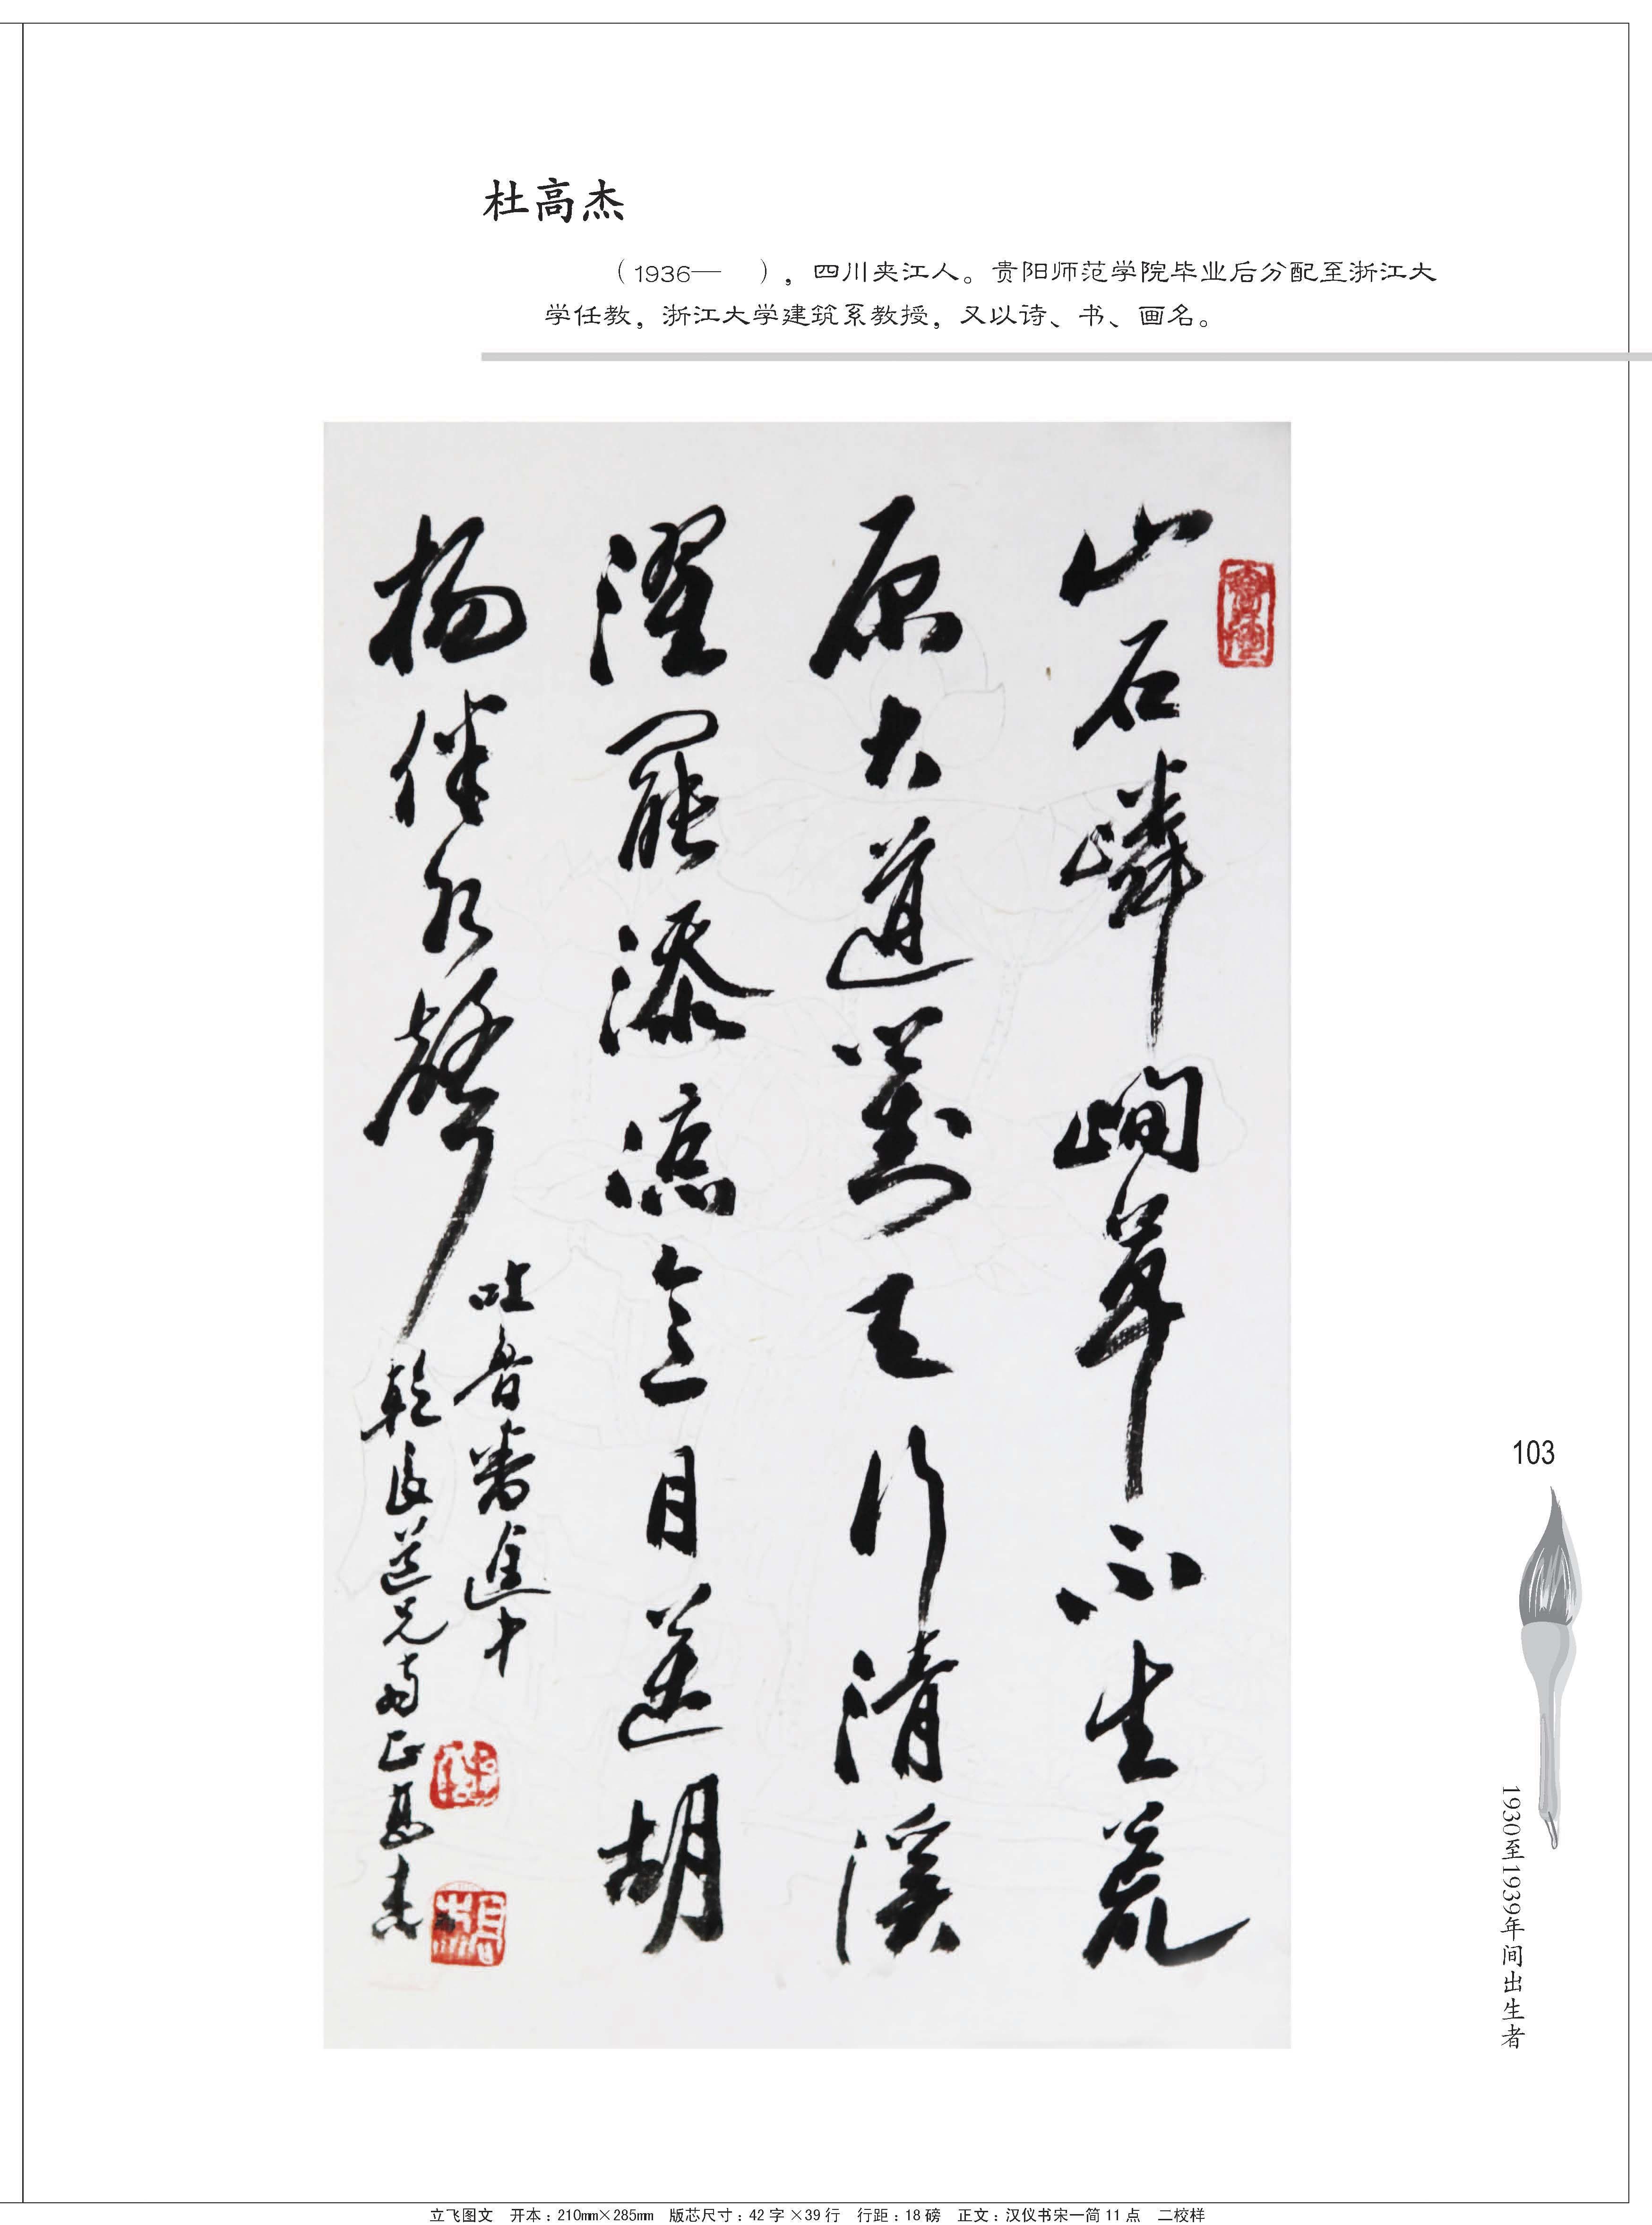 杜高杰
（1936—　），四川夹江人。贵阳师范学院毕业后分配至浙江大
学任教，浙江大学建筑系教授，又以诗、书、画名。
山石嶙峋草不生荒
原大道万里行清溪
濯罢添凉意目送胡
杨伴水声
吐鲁番途中
乾良道兄两正高杰
103
1930至1939年间出生者
立飞图文　开本：210mm×285mm　版芯尺寸：42字×39行　行距：18磅　正文：汉仪书宋一简11点　二校样